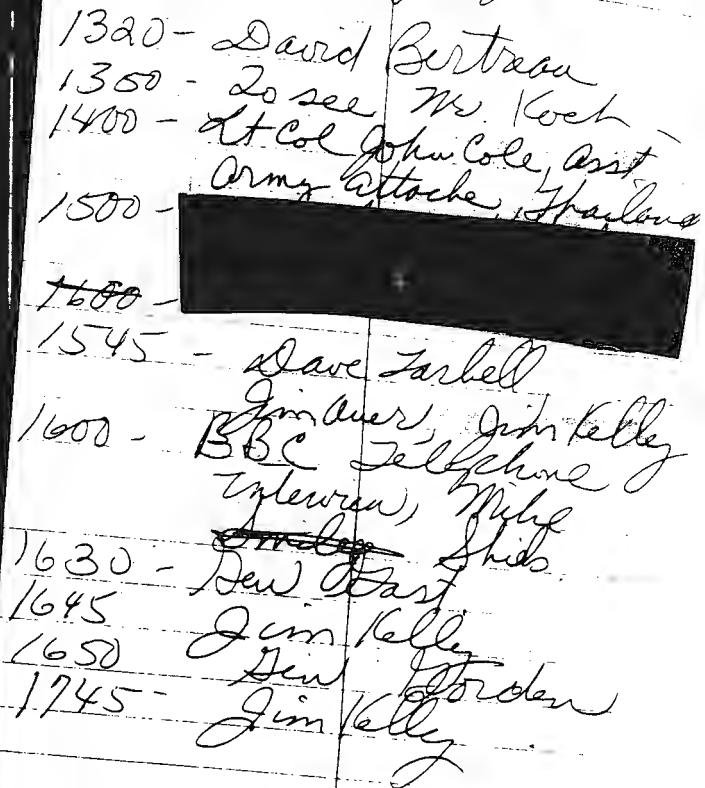 1320 - David Bertreau
1350 - To see Mr. Koch -
1400 - Lt Col John Cole, asst
army attache, Thailand
1500 -
1600 -
1545 - Dave Tarbell
Jim Auer, Jim Kelly
1600 - BBC Telephone
Interview, Mike
1630 - Gen
1645 Jim Kelly
1650 Gen
1745 - Jim Kelly